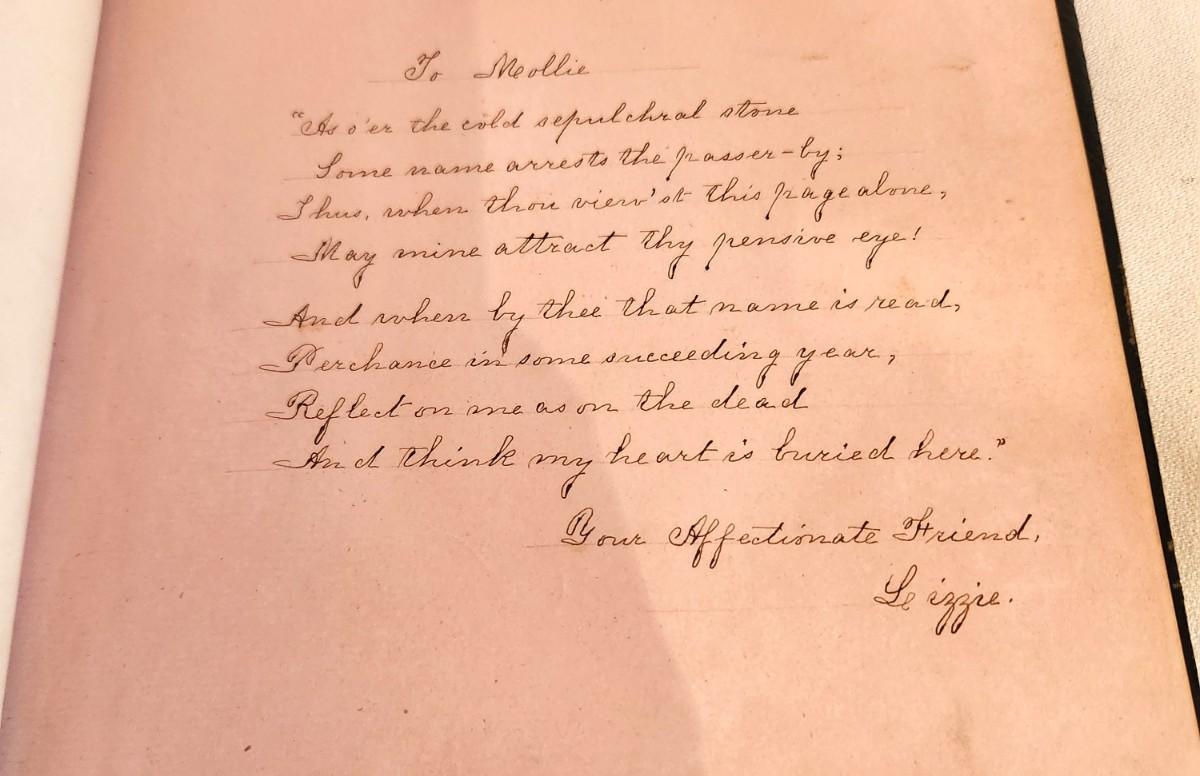 To Mollie
"As o'er the cold sepulchral stone
Some name arrests the passer-by;
Thus, when thou view'st this page alone,
May mine attract thy pensive eye!
And when by thee that name is read,
Perchance in some succeeding year,
Reflect on me as on the dead
And think my heart is buried here."
Your Affectionate Friend,
Lizzie.